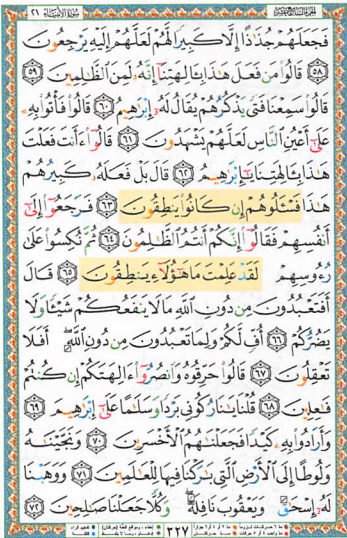 سورة الأنبياء ٢١
فَجَعَلَهُمْ جُذَٰذًا إِلَّا كَبِيرًا لَّهُمْ لَعَلَّهُمْ إِلَيْهِ يَرْجِعُونَ
٥٨ قَالُوا۟ مَن فَعَلَ هَٰذَا بِـَٔالِهَتِنَآ إِنَّهُۥ لَمِنَ ٱلظَّٰلِمِينَ ٥٩
قَالُوا۟ سَمِعْنَا فَتًى يَذْكُرُهُمْ يُقَالُ لَهُۥٓ إِبْرَٰهِيمُ ٦٠ قَالُوا۟ فَأْتُوا۟ بِهِۦ
عَلَىٰٓ أَعْيُنِ ٱلنَّاسِ لَعَلَّهُمْ يَشْهَدُونَ ٦١ قَالُوٓا۟ ءَأَنتَ فَعَلْتَ
هَٰذَا بِـَٔالِهَتِنَا يَٰٓإِبْرَٰهِيمُ ٦٢ قَالَ بَلْ فَعَلَهُۥ كَبِيرُهُمْ
هَٰذَا فَسْـَٔلُوهُمْ إِن كَانُوا۟ يَنطِقُونَ ٦٣ فَرَجَعُوٓا۟ إِلَىٰٓ
أَنفُسِهِمْ فَقَالُوٓا۟ إِنَّكُمْ أَنتُمُ ٱلظَّٰلِمُونَ ٦٤ ثُمَّ نُكِسُوا۟ عَلَىٰ
رُءُوسِهِمْ لَقَدْ عَلِمْتَ مَا هَٰٓؤُلَآءِ يَنطِقُونَ ٦٥ قَالَ
أَفَتَعْبُدُونَ مِن دُونِ ٱللَّهِ مَا لَا يَنفَعُكُمْ شَيْـًٔا وَلَا
يَضُرُّكُمْ ٦٦ أُفٍّ لَّكُمْ وَلِمَا تَعْبُدُونَ مِن دُونِ ٱللَّهِ ۖ أَفَلَا
تَعْقِلُونَ ٦٧ قَالُوا۟ حَرِّقُوهُ وَٱنصُرُوٓا۟ ءَالِهَتَكُمْ إِن كُنتُمْ
فَٰعِلِينَ ٦٨ قُلْنَا يَٰنَارُ كُونِى بَرْدًا وَسَلَٰمًا عَلَىٰٓ إِبْرَٰهِيمَ ٦٩
وَأَرَادُوا۟ بِهِۦ كَيْدًا فَجَعَلْنَٰهُمُ ٱلْأَخْسَرِينَ ٧٠ وَنَجَّيْنَٰهُ
وَلُوطًا إِلَى ٱلْأَرْضِ ٱلَّتِى بَٰرَكْنَا فِيهَا لِلْعَٰلَمِينَ ٧١ وَوَهَبْنَا
لَهُۥٓ إِسْحَٰقَ وَيَعْقُوبَ نَافِلَةً ۖ وَكُلًّا جَعَلْنَا صَٰلِحِينَ ٧٢
٣٢٧